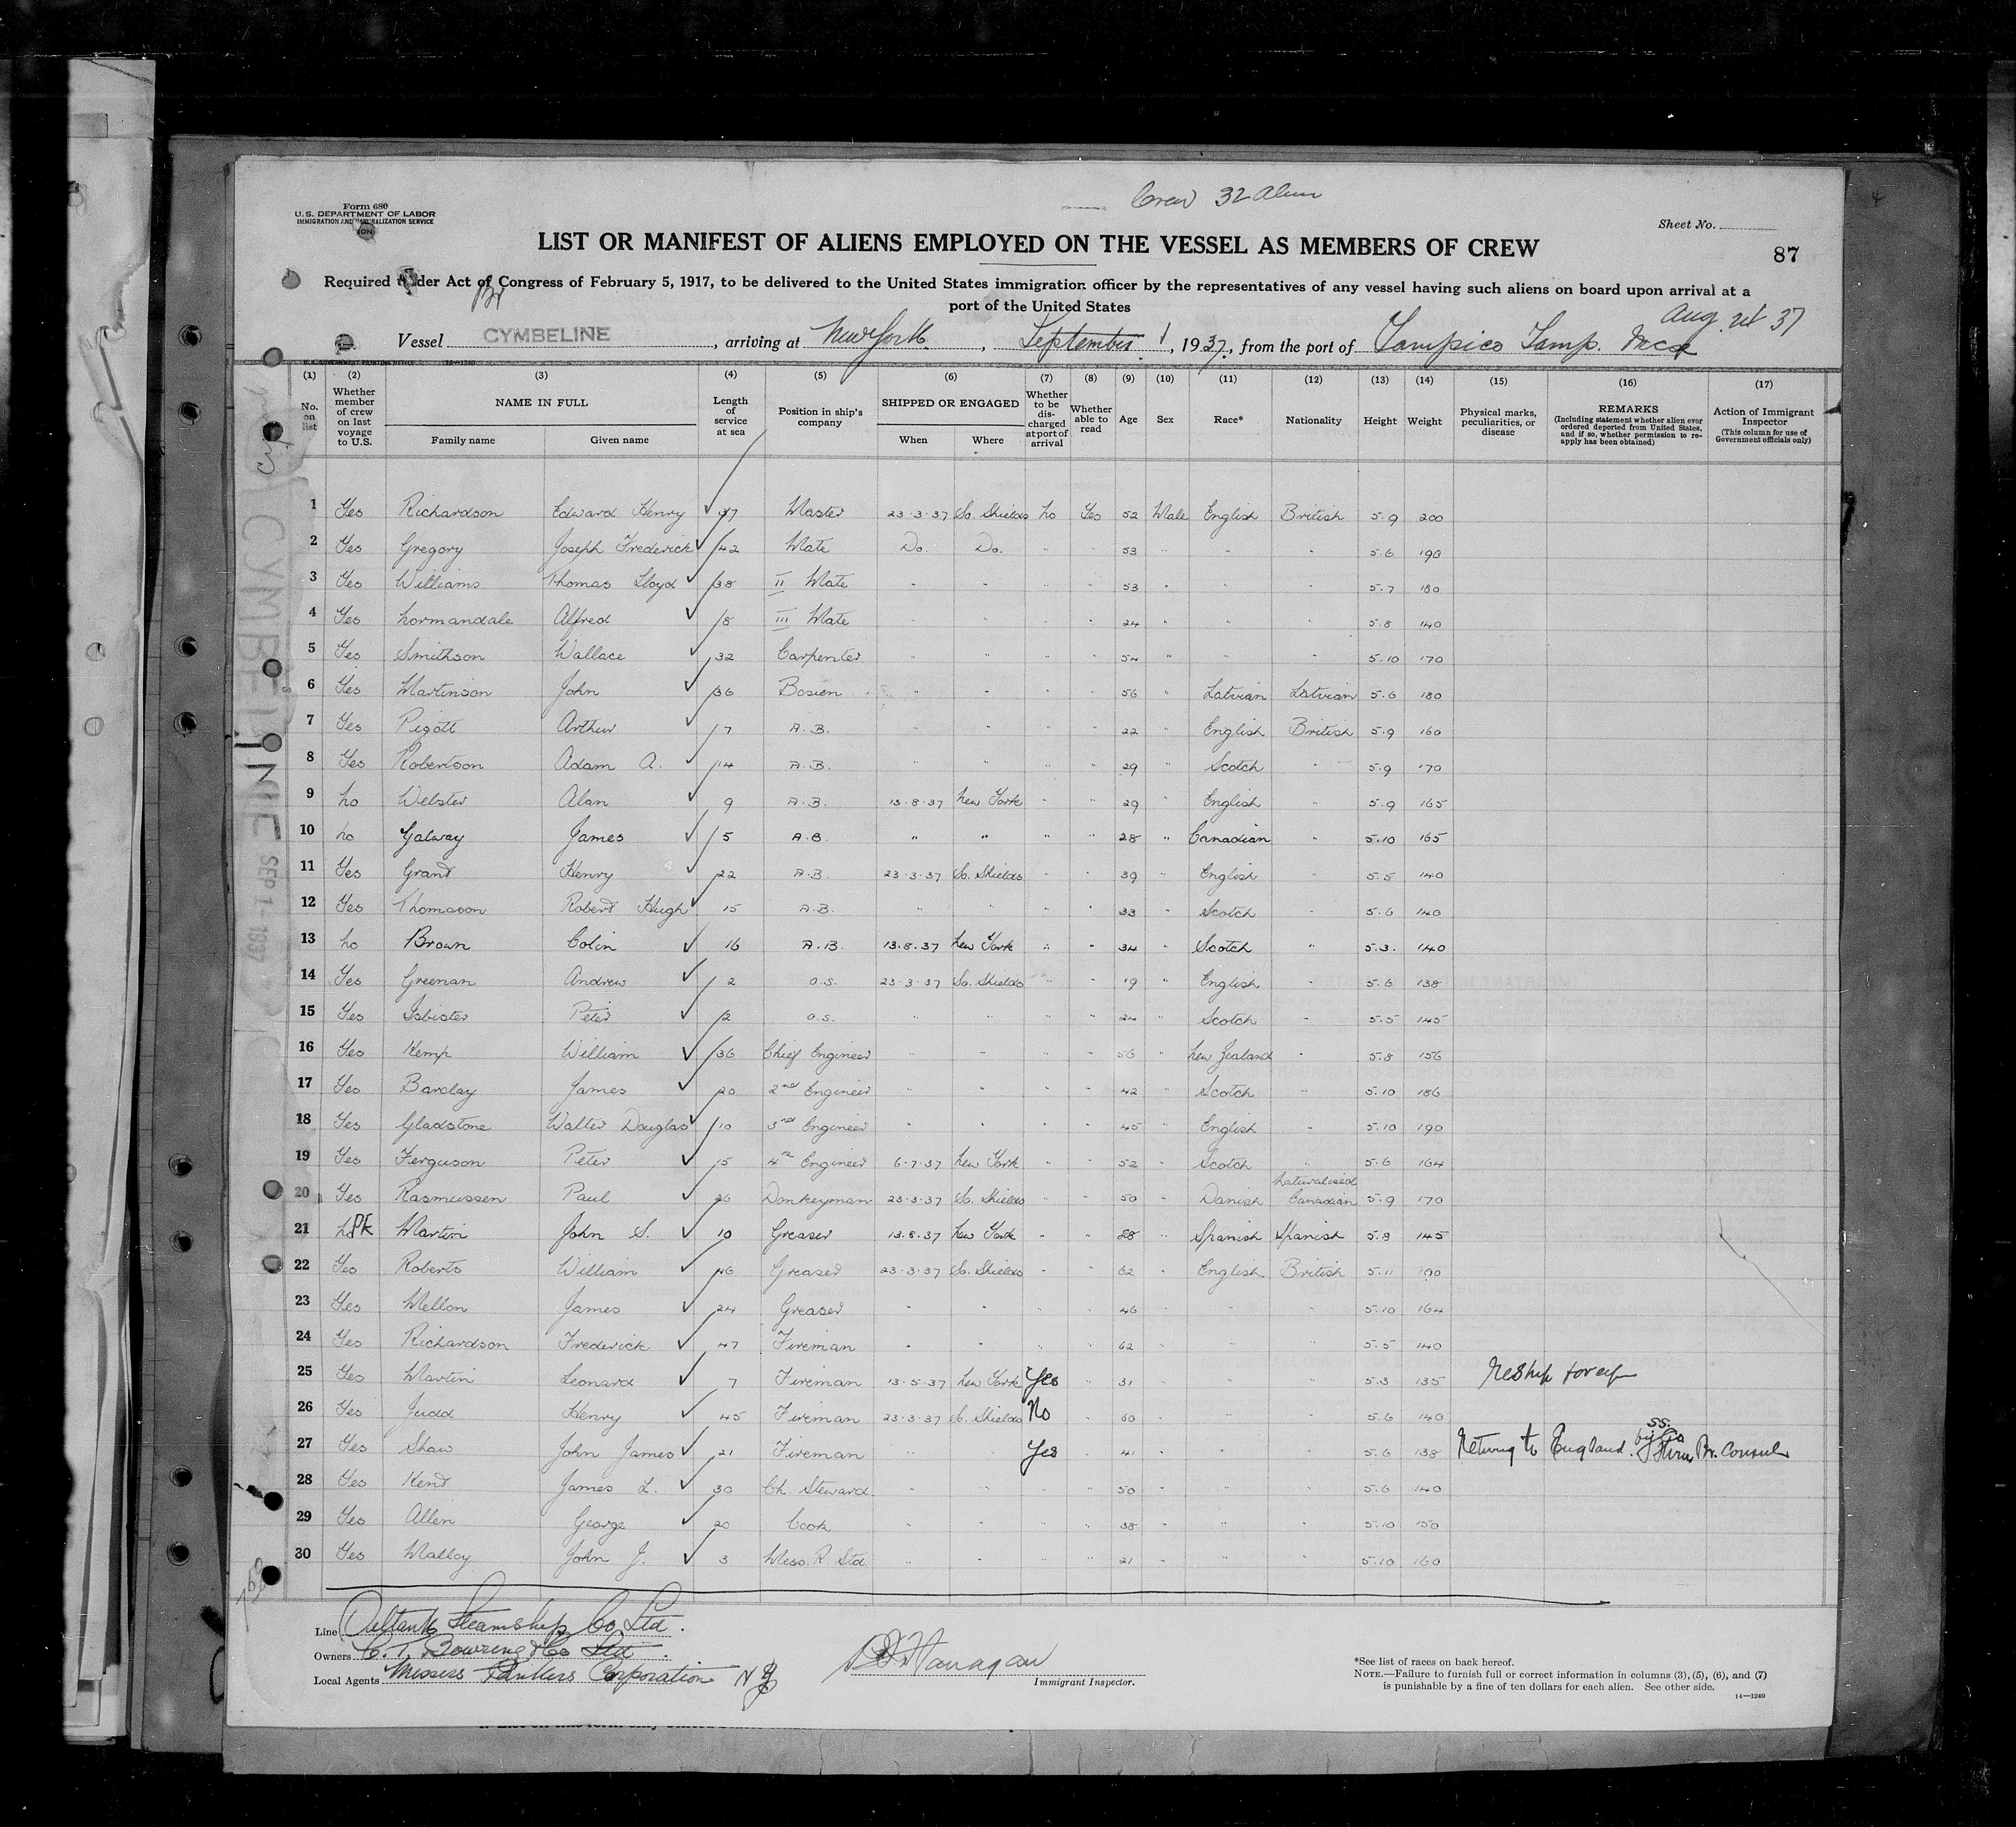 Crew 32 Alien
Form 680
U.S. DEPARTMENT OF LABOR
IMMIGRATION AND NATURALIZATION SERVICE
Sheet No.
LIST OR MANIFEST OF ALIENS EMPLOYED ON THE VESSEL AS MEMBERS OF CREW
87
Required under Act of Congress of February 5, 1917, to be delivered to the United States immigration officer by the representatives of any vessel having such aliens on board upon arrival at a
port of the United States
Br
Aug. 24 37
Vessel CYMBELINE, arriving at New York, September 1, 1937, from the port of Tampico Tamp. Mex
(1) (2) (3) (4) (5) (6) (7) (8) (9) (10) (11) (12) (13) (14) (15) (16) (17)
No. on list Whether member of crew on last voyage to U.S. NAME IN FULL Family name Given name Length of service at sea Position in ship's company SHIPPED OR ENGAGED When Where Whether to be discharged at port of arrival Whether able to read Age Sex Race* Nationality Height Weight Physical marks, peculiarities, or disease REMARKS (Including statement whether alien ever ordered deported from United States, and if so, whether permission to reapply has been obtained) Action of Immigrant Inspector (This column for use of Government officials only)
1 Yes Richardson Edward Henry 47 Master 23.3.37 So. Shields No Yes 52 Male English British 5.9 200
2 Yes Gregory Joseph Frederick 42 Mate Do. Do. " " 53 " " " 5.6 190
3 Yes Williams Thomas Lloyd 38 II Mate " " " " 53 " " " 5.7 180
4 Yes Normandale Alfred 8 III Mate " " " " 24 " " " 5.8 140
5 Yes Smithson Wallace 32 Carpenter " " " " 54 " " " 5.10 170
6 Yes Martinson John 36 Bosun " " " " 56 " Latvian Latvian 5.6 180
7 Yes Pigott Arthur 7 A.B. " " " " 22 " English British 5.9 160
8 Yes Robertson Adam A. 14 A.B. " " " " 29 " Scotch " 5.9 170
9 No Webster Alan 9 A.B. 13.8.37 New York " " 29 " English " 5.9 165
10 No Galway James 5 A.B. " " " " 28 " Canadian " 5.10 165
11 Yes Grant Henry 22 A.B. 23.3.37 So. Shields " " 39 " English " 5.5 140
12 Yes Thomason Robert Hugh 15 A.B. " " " " 33 " Scotch " 5.6 140
13 No Brown Colin 16 A.B. 13.8.37 New York " " 34 " Scotch " 5.3. 140
14 Yes Greenan Andrew 2 O.S. 23.3.37 So. Shields " " 19 " English " 5.6 138
15 Yes Isbister Peter 2 O.S. " " " " 24 " Scotch " 5.5 145
16 Yes Kemp William 36 Chief Engineer " " " " 56 " New Zealand " 5.8 156
17 Yes Barclay James 20 2nd Engineer " " " " 42 " Scotch " 5.10 186
18 Yes Gladstone Walter Douglas 10 3rd Engineer " " " " 45 " English " 5.10 190
19 Yes Ferguson Peter 15 4th Engineer 6.7.37 New York " " 52 " Scotch " 5.6 164
20 Yes Rasmussen Paul 26 Donkeyman 23.3.37 So. Shields " " 50 " Danish Naturalised Canadian 5.9 170
21 No Martin John S. 10 Greaser 13.8.37 New York " " 28 " Spanish Spanish 5.8 145
22 Yes Roberts William 46 Greaser 23.3.37 So. Shields " " 62 " English British 5.11 190
23 Yes Mellon James 24 Greaser " " " " 46 " " " 5.10 164
24 Yes Richardson Frederick 47 Fireman " " " " 62 " " " 5.5 140
25 Yes Martin Leonard 7 Fireman 13.5.37 New York Yes " 31 " " " 5.3 135 Reship foreign
26 Yes Judd Henry 45 Fireman 23.3.37 So. Shields No " 60 " " " 5.6 140
27 Yes Shaw John James 21 Fireman " " Yes " 41 " " " 5.6 138 Returning to England. by SS. Br. Consul
28 Yes Kent James L. 30 Ch. Steward " " " " 50 " " " 5.6 140
29 Yes Allen George 20 Cook " " " " 38 " " " 5.10 150
30 Yes Malloy John J. 3 Mess. R. Std. " " " " 21 " " " 5.10 160
Line Oiltank Steamship Co. Ltd.
Owners C.T. Bowring & Co Ltd.
Local Agents Messrs Tankers Corporation N Y
Immigrant Inspector.
*See list of races on back hereof.
NOTE.—Failure to furnish full or correct information in columns (3), (5), (6), and (7)
is punishable by a fine of ten dollars for each alien. See other side.
14—1240
CYMBELINE SEP 1 - 1937